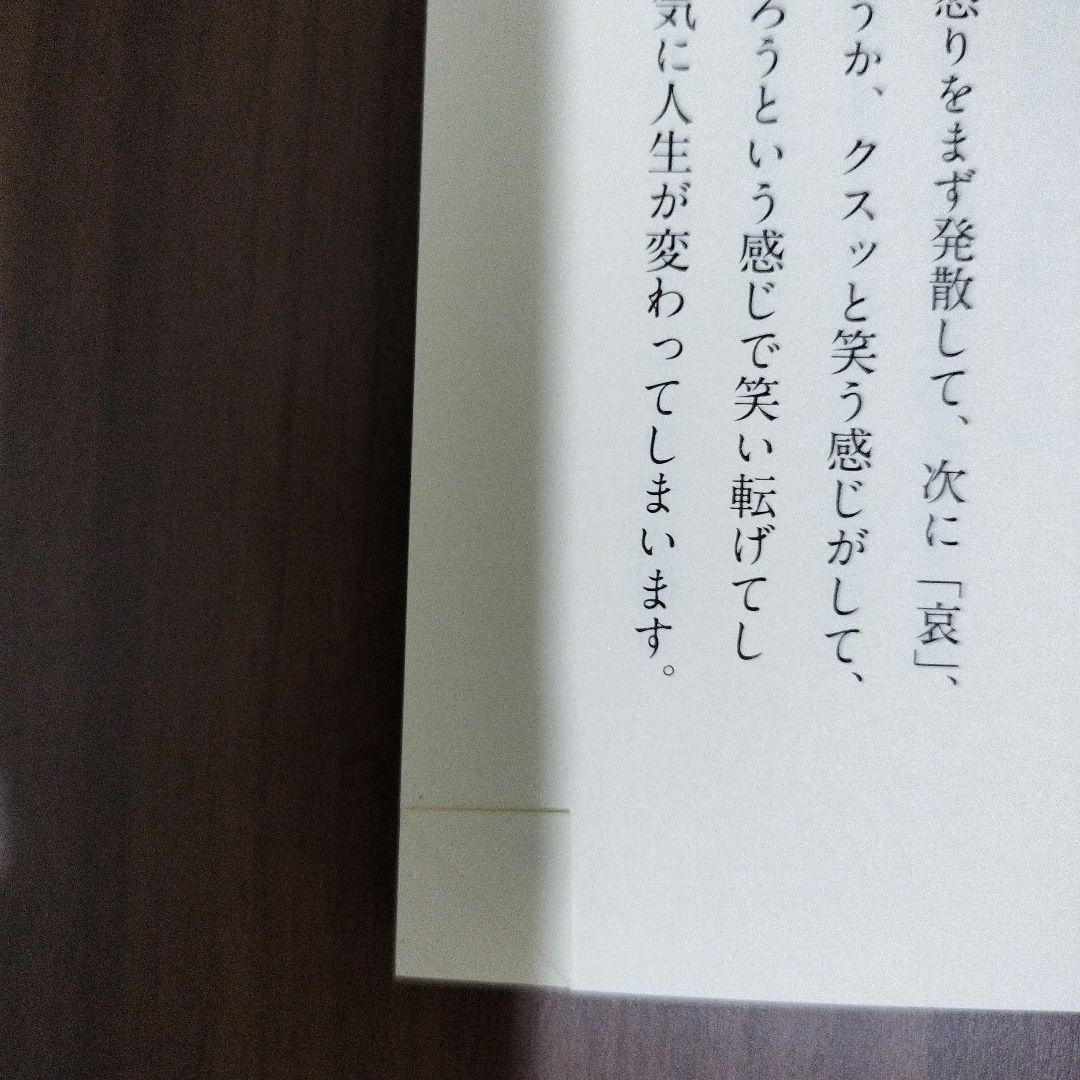 怒りをまず発散して、次に「哀」、
うか、クスッと笑う感じがして、
ろうという感じで笑い転げてし
気に人生が変わってしまいます。